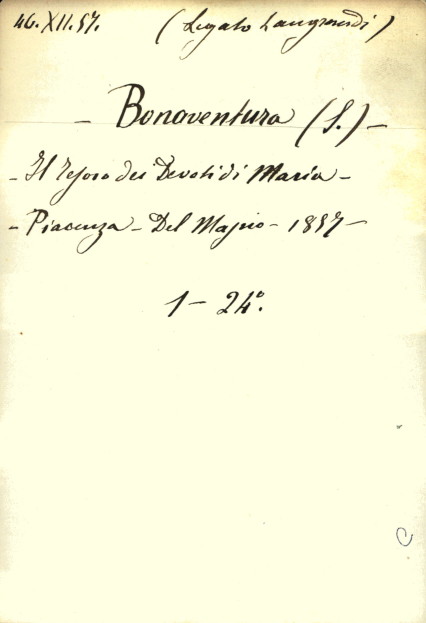 46.XII.57. (Legato Langosardi)
- Bonaventura (S.) -
- Il Tesoro dei Devoti di Maria -
- Piacenza - Del Majno - 1857 -
1 - 24º.
C